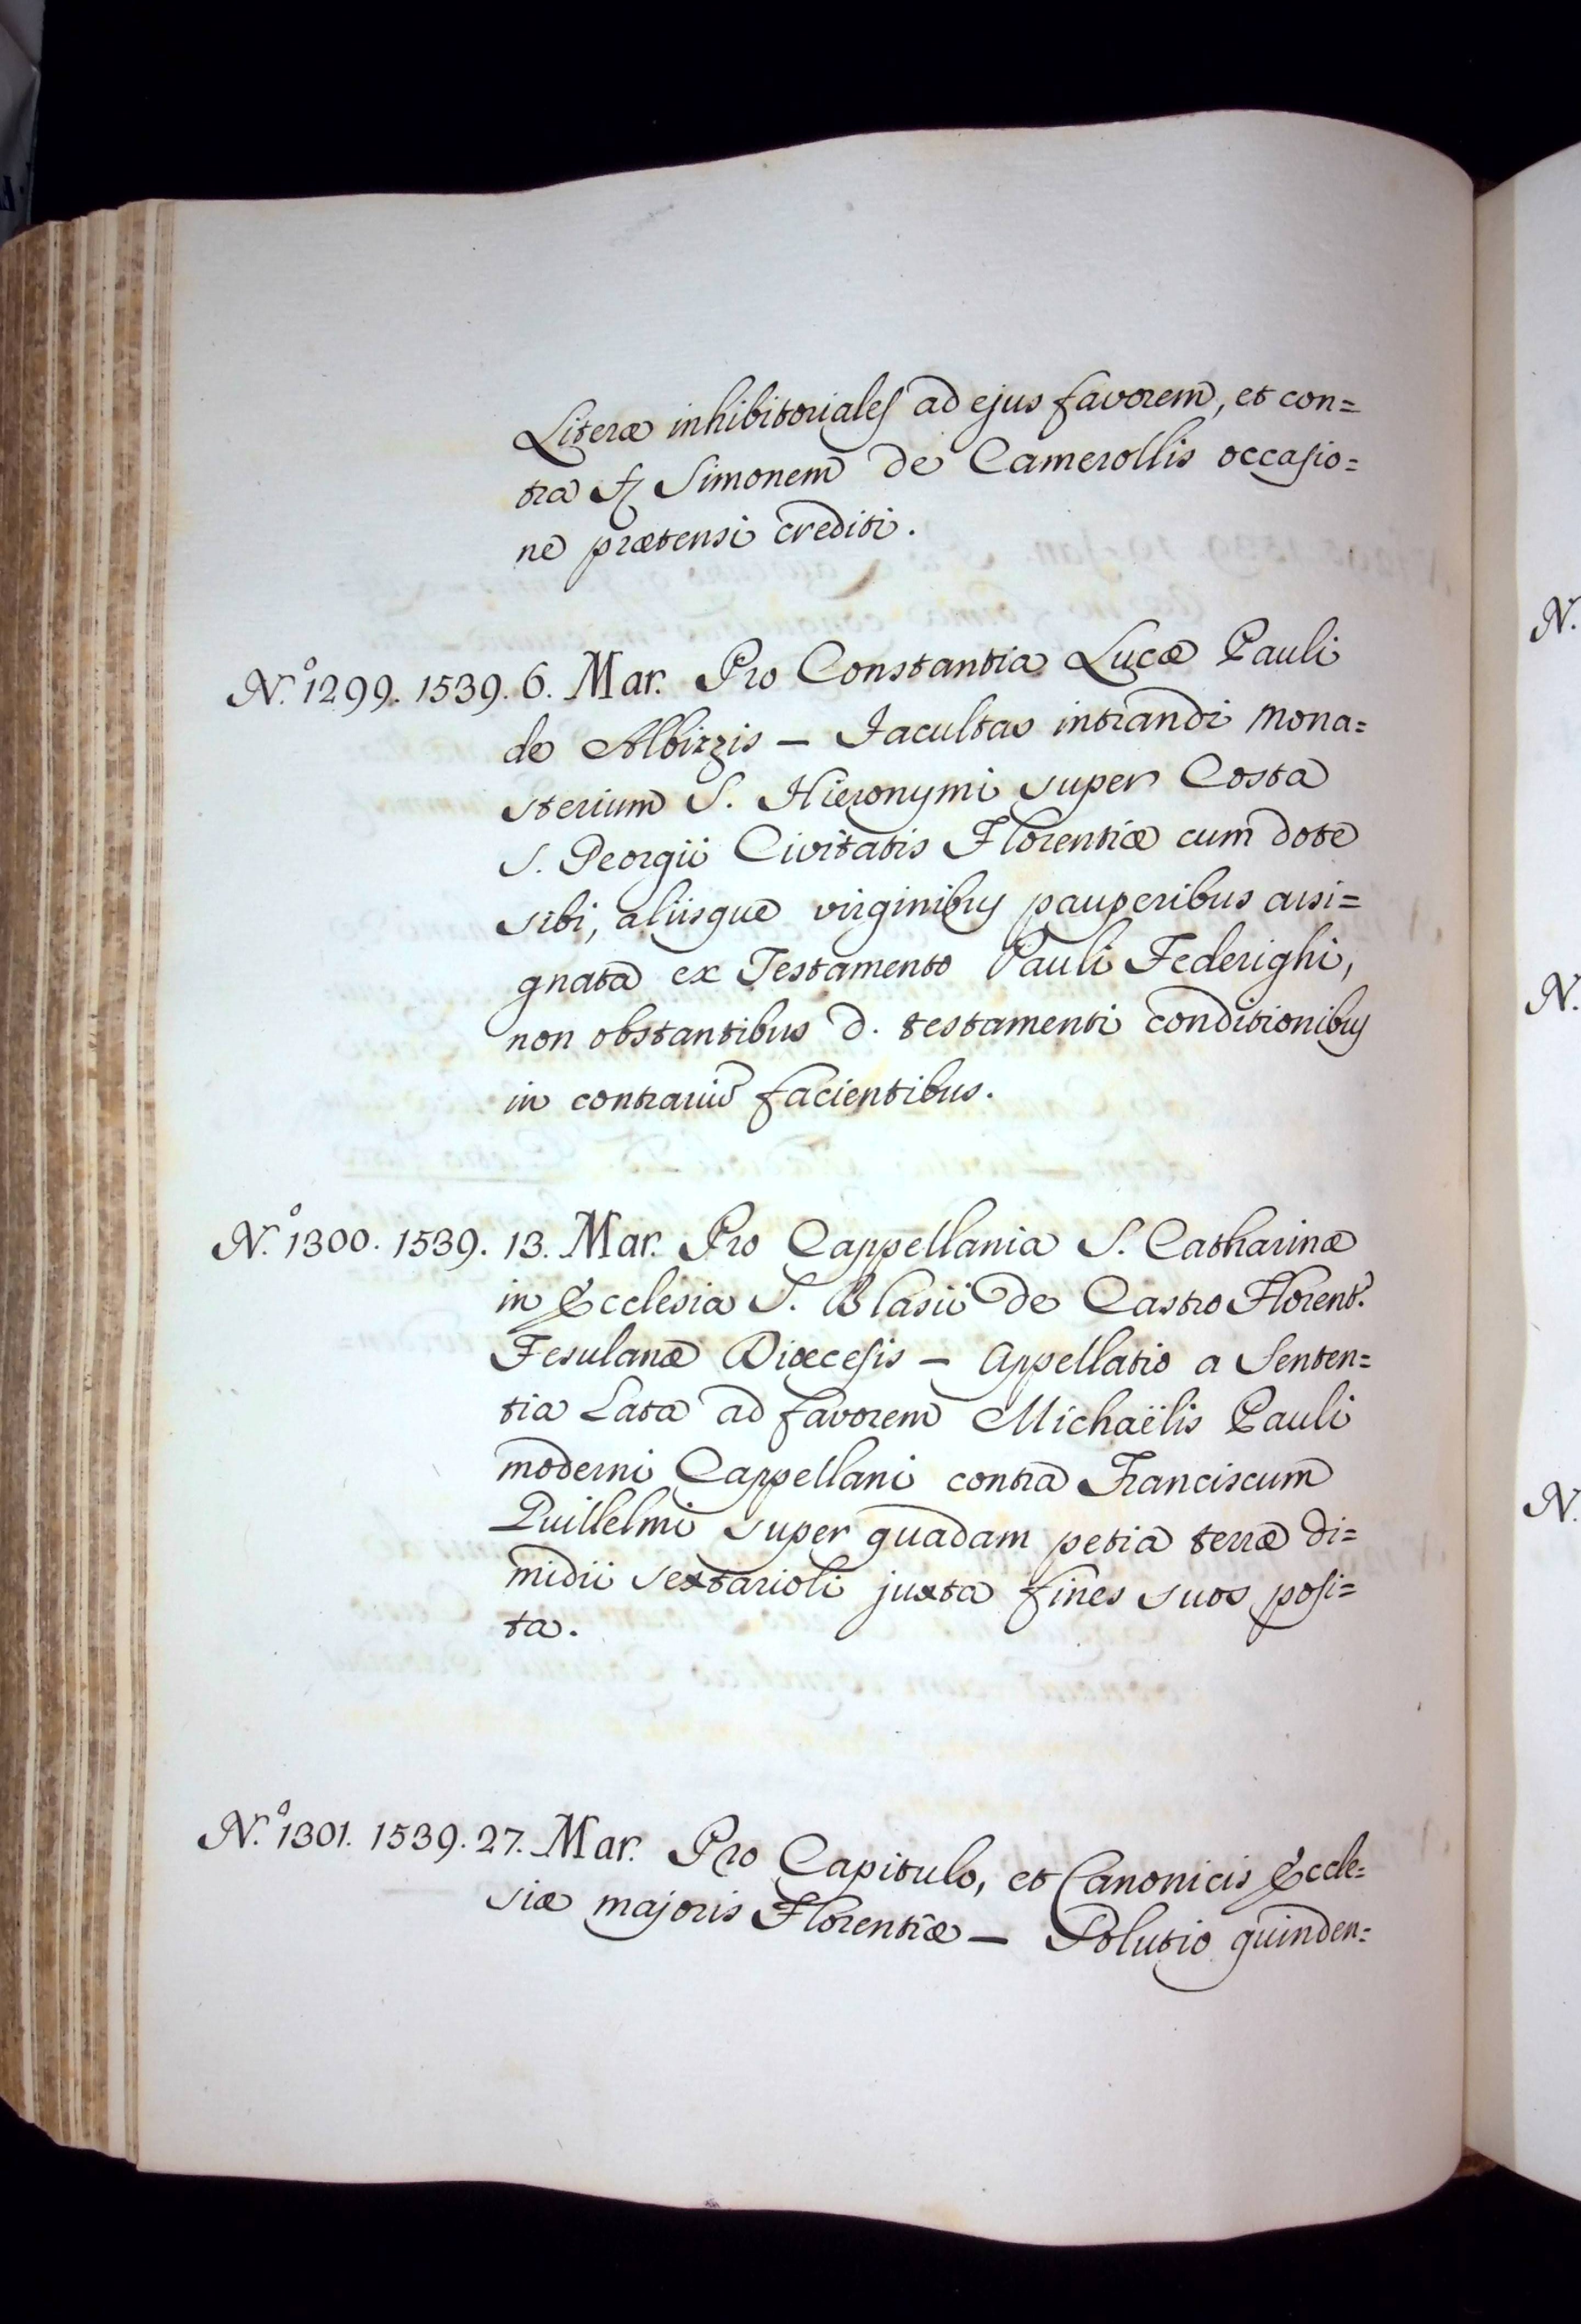 Literæ inhibitoriales ad ejus favorem, et con=
tra Simonem de Camerollis occasio=
ne prætensi crediti.
N.º 1299. 1539. 6. Mar. Pro Constantia Lucæ Pauli
de Albizzis — Facultas intrandi Mona=
sterium S. Hieronymi super Costa
S. Georgii Civitatis Florentiæ cum dote
sibi, aliisque virginibus pauperibus assi=
gnata ex Testamento Pauli Federighi,
non obstantibus d. testamenti conditionibus
in contrariũ facientibus.
N.º 1300. 1539. 13. Mar. Pro Cappellania S. Catharinæ
in Ecclesia S. Blasii de Castro Florent.
Fesulanæ Diœcesis — Appellatio a Senten=
tia Lata ad favorem Michaëlis Pauli
moderni Cappellani contra Franciscum
Guillelmi super quadam petia terræ di=
midii sextarioli juxta fines suos posi=
ta.
N.º 1301. 1539. 27. Mar. Pro Capitulo, et Canonicis Eccle=
siæ majoris Florentiæ — Solutio quinden=
N.
N.
N.